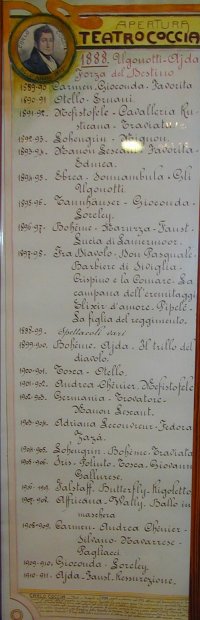 APERTURA
TEATRO COCCIA
1888. Ugonotti - Ajda
Forza del Destino
1889-90 Carmen, Gioconda, Favorita
1890-91 Otello - Ernani
1891-92. Mefistofele - Cavalleria Ru
sticana - Traviata
1892-93. Lohengrin - Mignon
1893-94. Manon Lescaut - Favorita
Edmea.
1894-95. Ebrea - Sonnambula - Gli
Ugonotti.
1895-96. Tannhäuser - Gioconda -
Loreley.
1896-97. Bohème - Faust -
Lucia di Lamermoor.
1897-98. Fra Diavolo - Don Pasquale -
Barbiere di Siviglia -
Crispino e la Comare - La
campana dell'eremitaggi
Elixir d'amore - Pipelè -
La figlia del reggimento.
1898-99. Spettacoli vari
1899-900. Bohème - Ajda - Il trillo del
diavolo.
1900-901. Tosca - Otello.
1901-902. Andrea Chènier - Mefistofele
1902-903. Germania - Trovatore -
Manon Lescaut.
Adriana Lecouvreur - Fedora
Zazà.
1904-905. Lohengrin - Bohème - Traviata
1905-906. Iris - Poliuto - Tosca - Giovanni
Gallurese.
1906-907. Falstaff - Butterfly - Rigoletto
1907-908. Affricana - Wally - Ballo in
maschera
1908-909. Carmen - Andrea Chènier -
Silvano - Navarrese -
Pagliacci.
1909-910. Gioconda - Loreley.
1910-911. Ajda - Faust - Resurrezione.
CARLO COCCIA